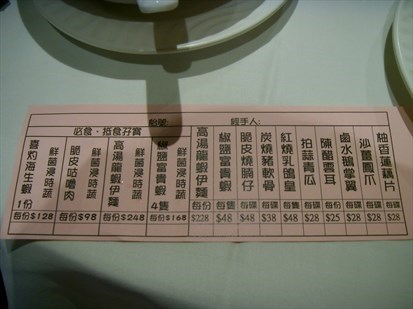 枱號:
經手人:
必食、抵食孖寶
喜灼海生蝦 1份 鮮菌浸時蔬 每份$128
脆皮咕嚕肉 鮮菌浸時蔬 每份$98
高湯龍蝦伊麵 鮮菌浸時蔬 每份$248
椒鹽富貴蝦 4隻 鮮菌浸時蔬 每份$168
高湯龍蝦伊麵 每份 $228
椒鹽富貴蝦 每隻 $48
脆皮燒腩仔 每碟 $48
炭燒豬軟骨 每碟 $38
紅燒乳鴿皇 每隻 $48
拍蒜青瓜 每碟 $28
陳醋雲耳 每碟 $25
鹵水鵝掌翼 每碟 $28
沙薑鳳爪 每碟 $28
柚香蓮藕片 每碟 $28